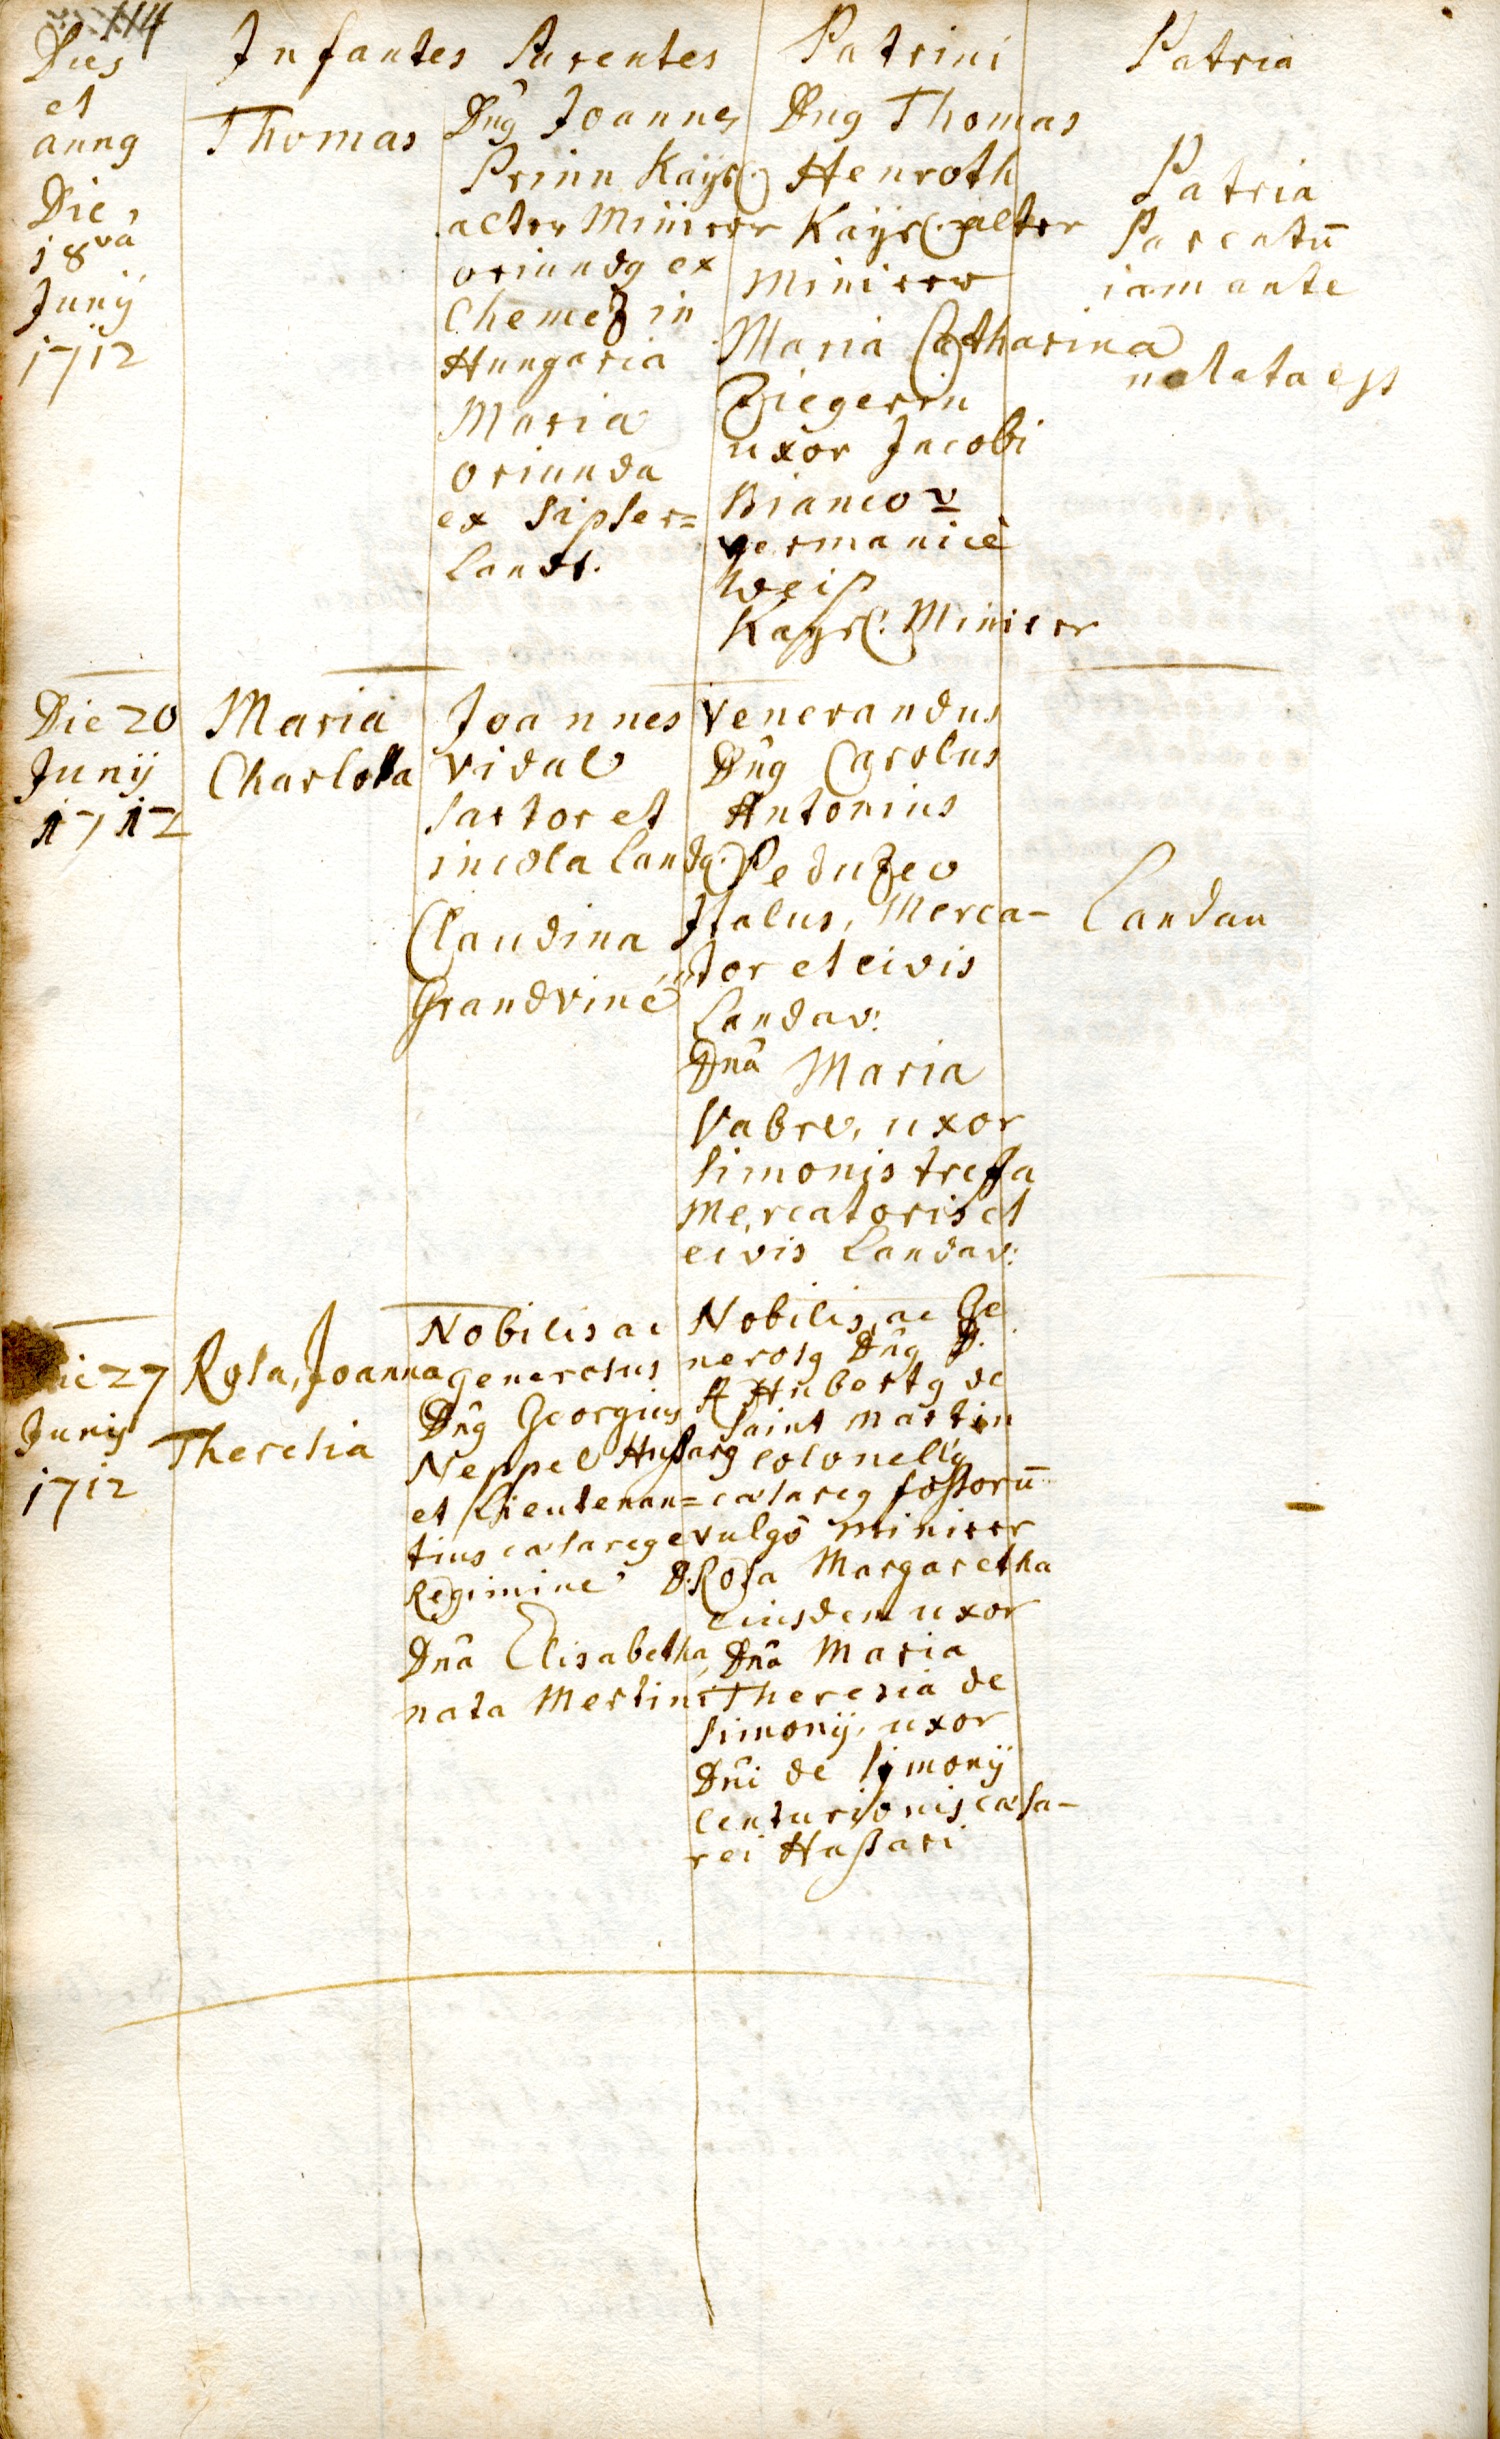 114
Dies
et
annꝯ
Infantes Parentes Patrini Patria
Die
18va
Junÿ
1712
Thomas
Dn̂ꝯ Joannes
Prinn Kaÿsl.
alter Minierer
oriundꝯ ex
Chemez in
Hungaria
Maria
oriunda
ex Sipser=
Landt.
Dnꝯ Thomas
Henroth
Kaÿsl. alter
Minierer
Maria Catharina
Ziegerin
uxor Jacobi
Bianco v
germanicè
Weiß
Kaysl. Minierer
Patria
Parentū
iam ante
notata est
Die 20
Junÿ
1712
Maria
Charlotta
Joannes
Vidal
Sartor et
incola Landꝯ.
Claudina
Grandviné
Venerandus
Dn̂ꝯ Carolus
Antonius
Peduzeo
Italus, Merca-
tor et civis
Landav:
Dnâ Maria
Vabre, uxor
Simonis tressa
Mercatoris et
civis Landav:
Landau
Die 27
Junÿ
1712
Rosa, Joanna
Theresia
Nobilis ac
Generosus
Dn̂ꝯ Georgius
Neppel Hußarꝯ
et Lieutenan=
tius cæsareꝯ e
Regimine
Dnâ Elisabetha
nata Mertin
Nobilis, ac Ge
nerosꝯ Dn̂ꝯ D.
Hubertꝯ de
Saint Martin
colonellꝯ
cæsareꝯ foßorū
vulgò minierer
D. Rosa Margaretha
eiusdem uxor
Dnâ Maria
Theresia de
Simonÿ, uxor
Dn̂i de Simonÿ
Centurionis cæsa-
rei Hußari